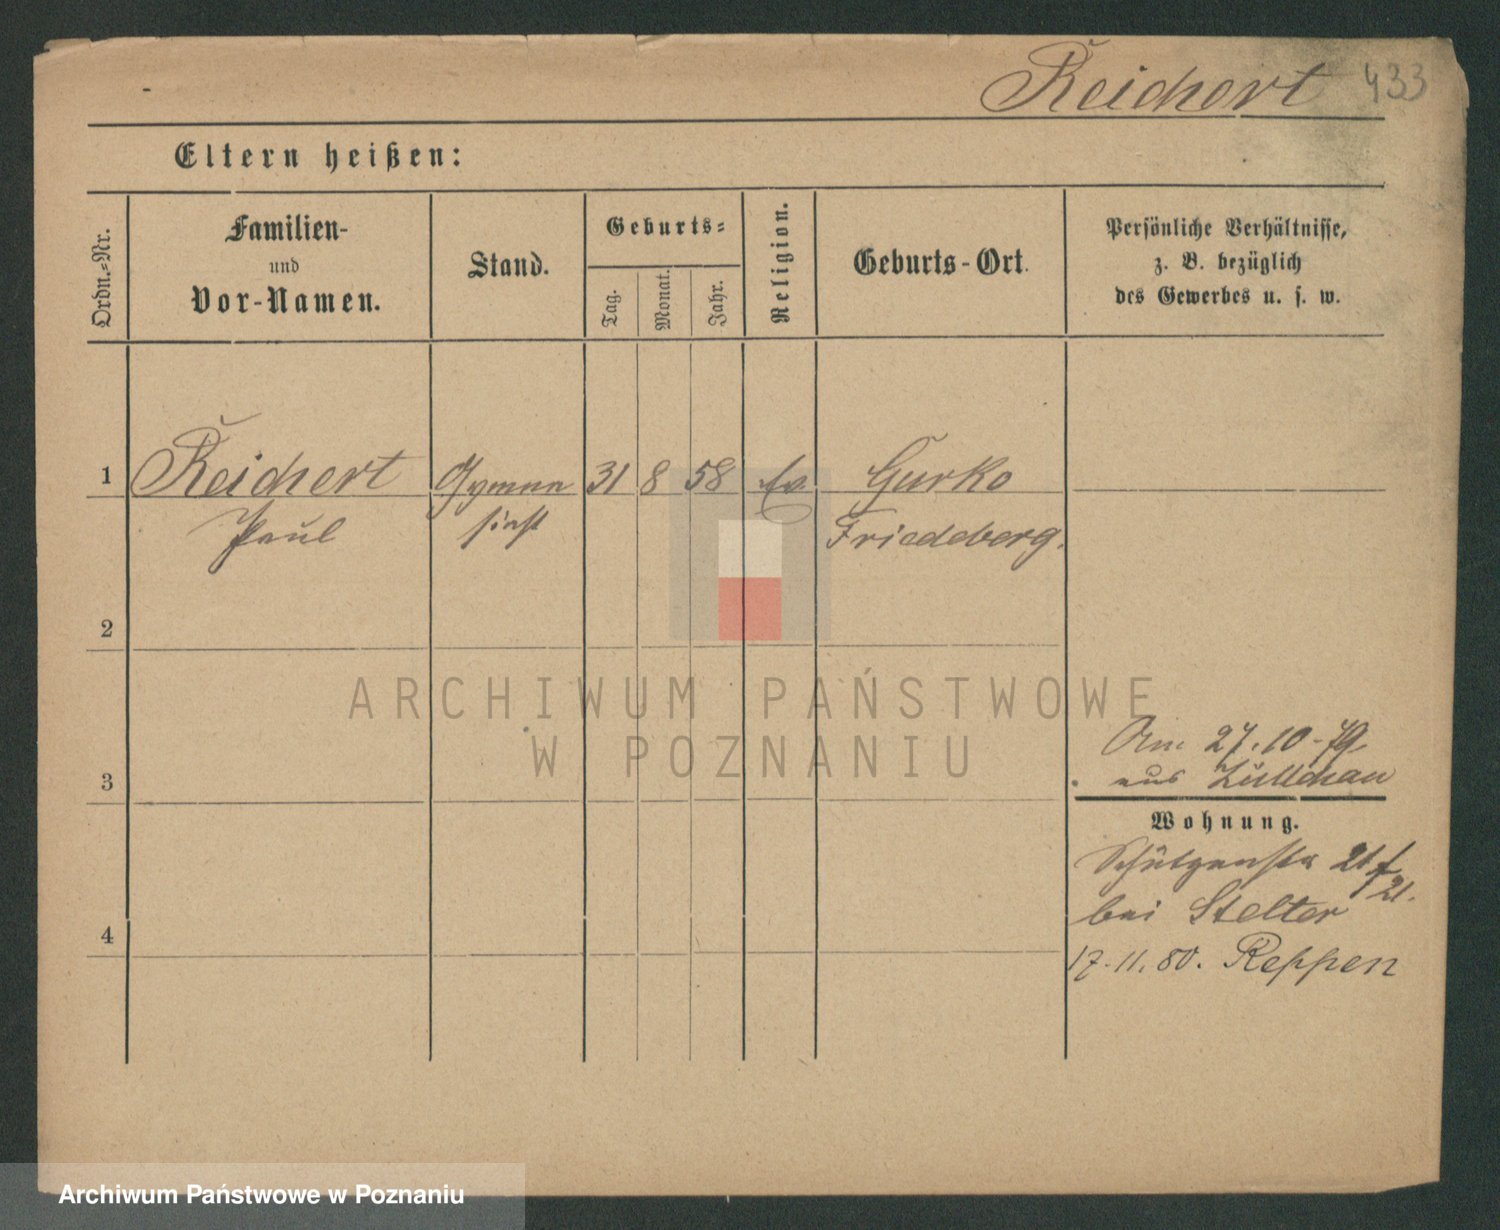 Reichert 433
Eltern heißen:
Ordn.=Nr.
Familien-
und
Vor-Namen.
Stand.
Geburts=
Tag.
Monat.
Jahr.
Religion.
Geburts-Ort.
Persönliche Verhältnisse,
z. B. bezüglich
des Gewerbes u. s. w.
1 Reichert Gymna 31 8 58 Ev Gurko
Paul siast Friedeberg.
2
ARCHIWUM PAŃSTWOWE
W POZNANIU
3
Am 27.10.79.
aus Züllchau
Wohnung.
Schützenstr 21
21.
bei Stelter
4
17.11.80. Reppen
Archiwum Państwowe w Poznaniu